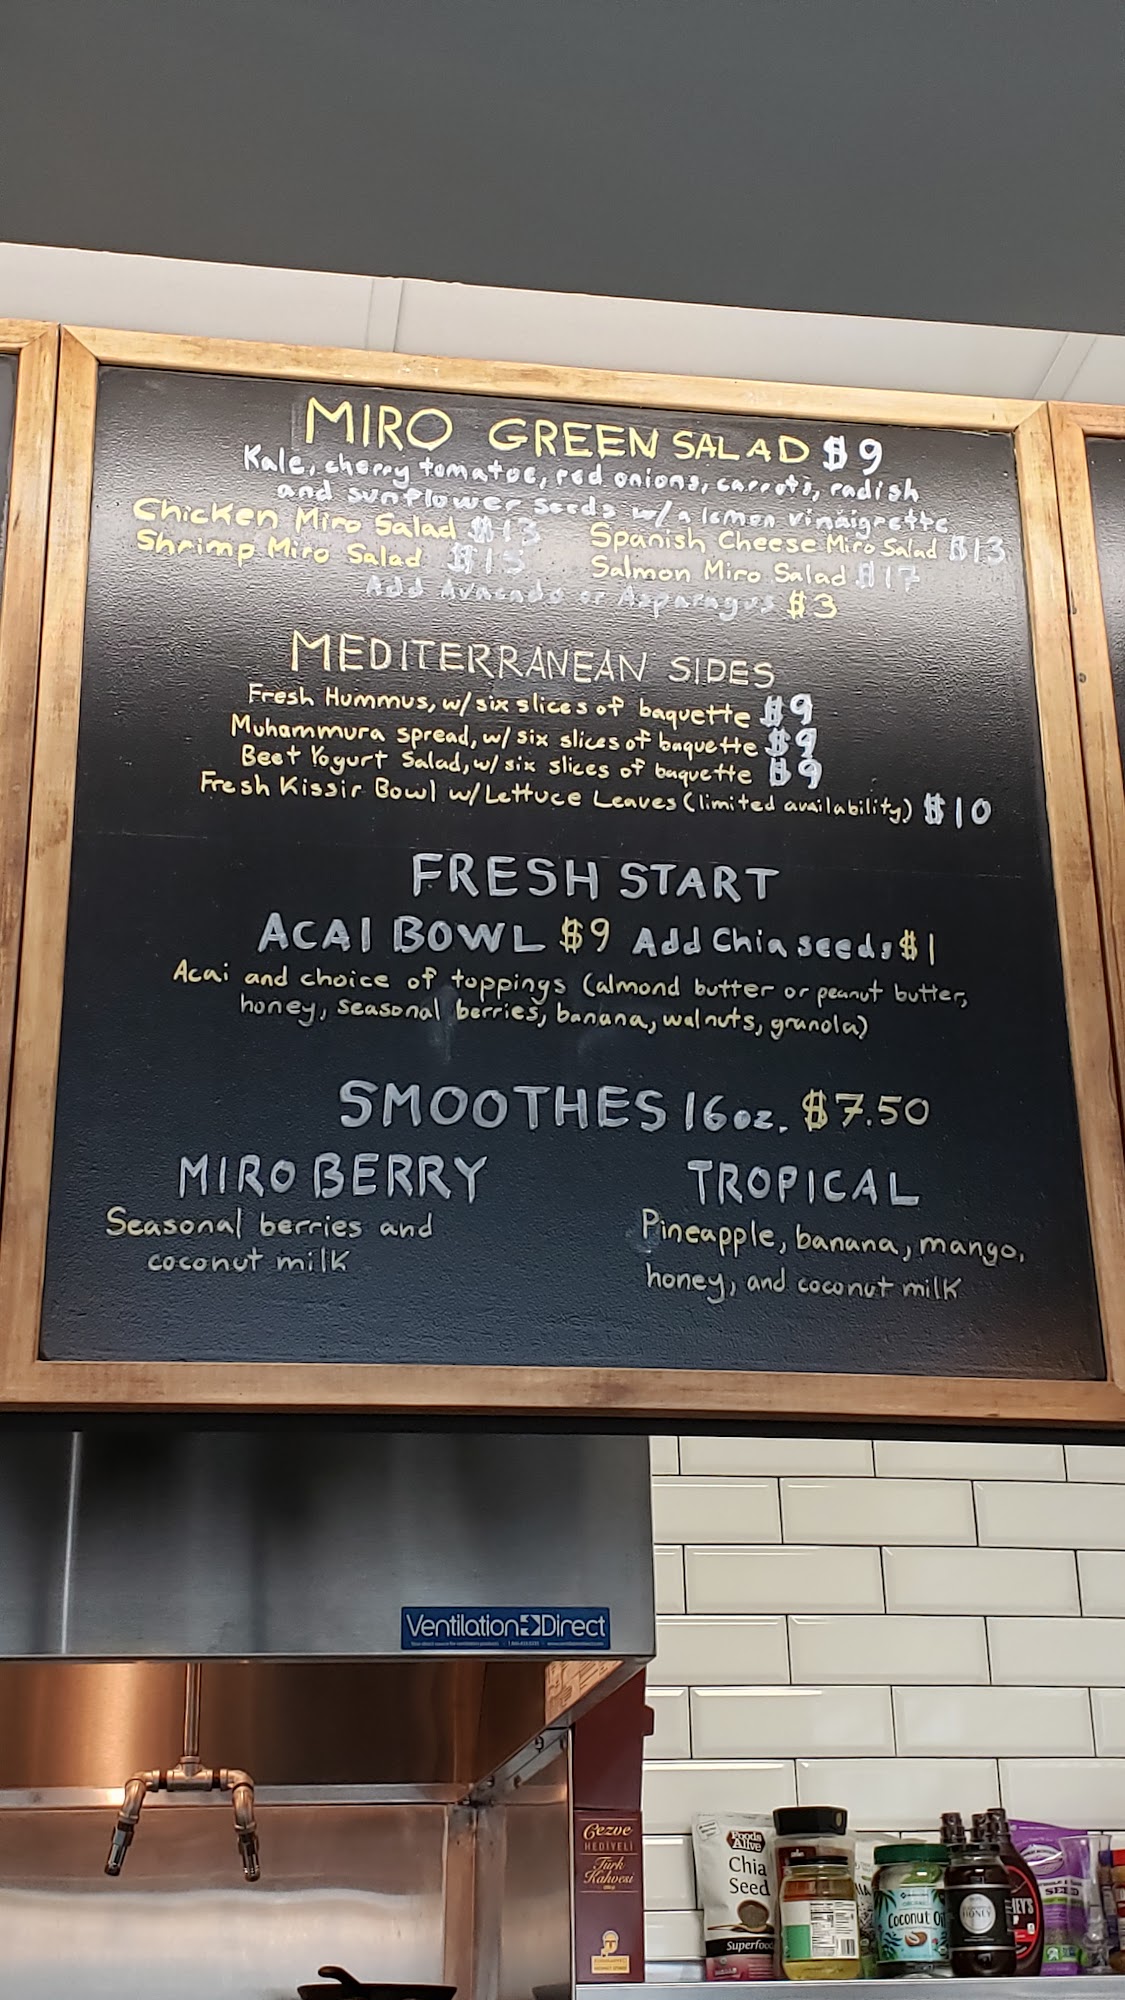 MIRO GREEN SALAD $9
Kale, cherry tomatoe, red onions, carrots, radish
and sunflower seeds w/a lemon vinaigrette
Chicken Miro Salad $13 Spanish Cheese Miro Salad $13
Shrimp Miro Salad $15 Salmon Miro Salad $17
Add Avacado or Asparagus $3
MEDITERRANEAN SIDES
Fresh Hummus, w/ six slices of baquette $9
Muhammura spread, w/ six slices of baquette $9
Beet Yogurt Salad, w/ six slices of baquette $9
Fresh Kissir Bowl w/ Lettuce Leaves (limited availability) $10
FRESH START
ACAI BOWL $9 Add Chia seeds $1
Acai and choice of toppings (almond butter or peanut butter,
honey, seasonal berries, banana, walnuts, granola)
SMOOTHES 16oz. $7.50
MIRO BERRY
Seasonal berries and
coconut milk
TROPICAL
Pineapple, banana, mango,
honey, and coconut milk
Ventilation Direct
Cezve
HEDİYELİ
Türk
Kahvesi
Foods
Alive
Chia
Seed
Superfood
Coconut Oil
HONEY
SEED